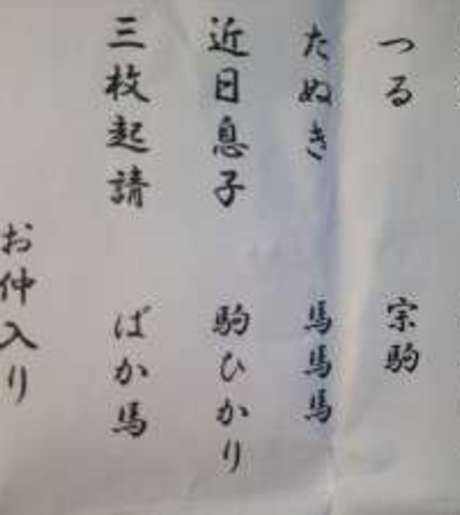 つる 宗駒
たぬき 馬馬馬
近日息子 駒ひかり
三枚起請 ばか馬
お仲入り